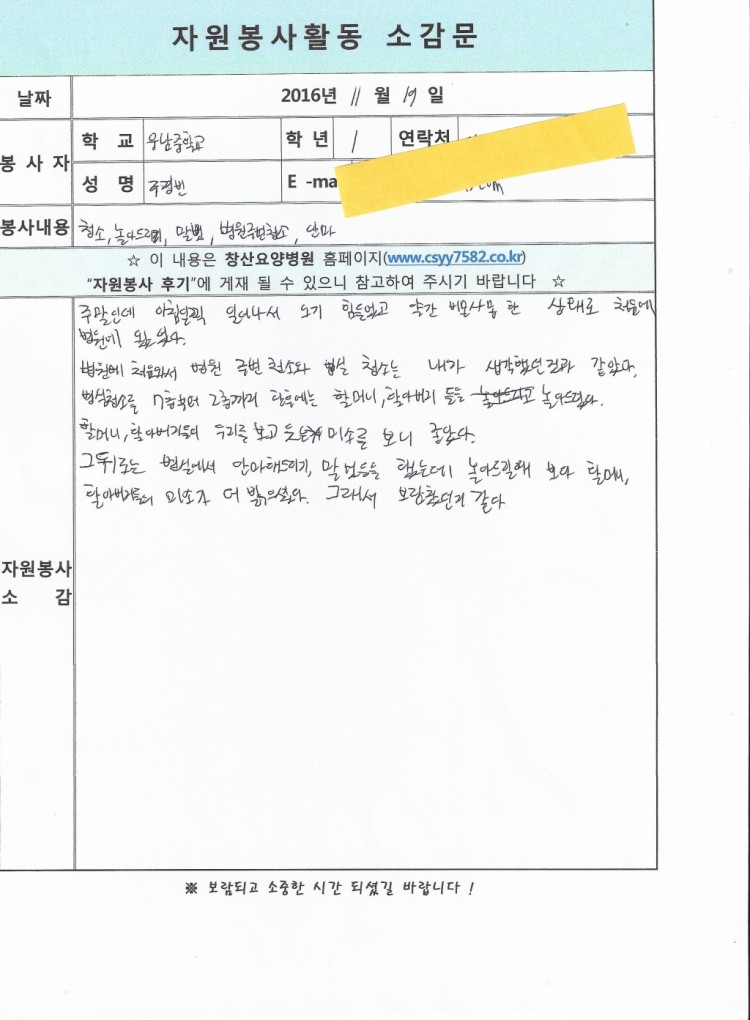 자원봉사활동 소감문
날짜 2016년 11 월 19 일
봉사자 학 교 웅남중학교 학 년 1 연락처
성 명 E -ma com
봉사내용 청소, 놀아드리기, 말벗, 병원주변청소, 안마
☆ 이 내용은 창산요양병원 홈페이지(www.csyy7582.co.kr)
“자원봉사 후기”에 게재 될 수 있으니 참고하여 주시기 바랍니다 ☆
주말인데 아침일찍 일어나서 오기 힘들었고 약간 비몽사몽 한 상태로 처음에
병원에 왔었다.
병원에 처음와서 병원 주변 청소와 병실 청소는 내가 생각했던것과 같았다.
병실청소를 7층부터 2층까지 한후에는 할머니, 할아버지 들을 놀아드리고 놀아드렸다.
할머니, 할아버지들이 우리를 보고 웃는 미소를 보니 좋았다.
그뒤로는 병실에서 안마해드리기, 말벗등을 했는데 놀아드릴때 보다 할머니,
할아버지들의 미소가 더 밝으셨다. 그래서 보람찼던거 같다
자원봉사
소 감
※ 보람되고 소중한 시간 되셨길 바랍니다 !